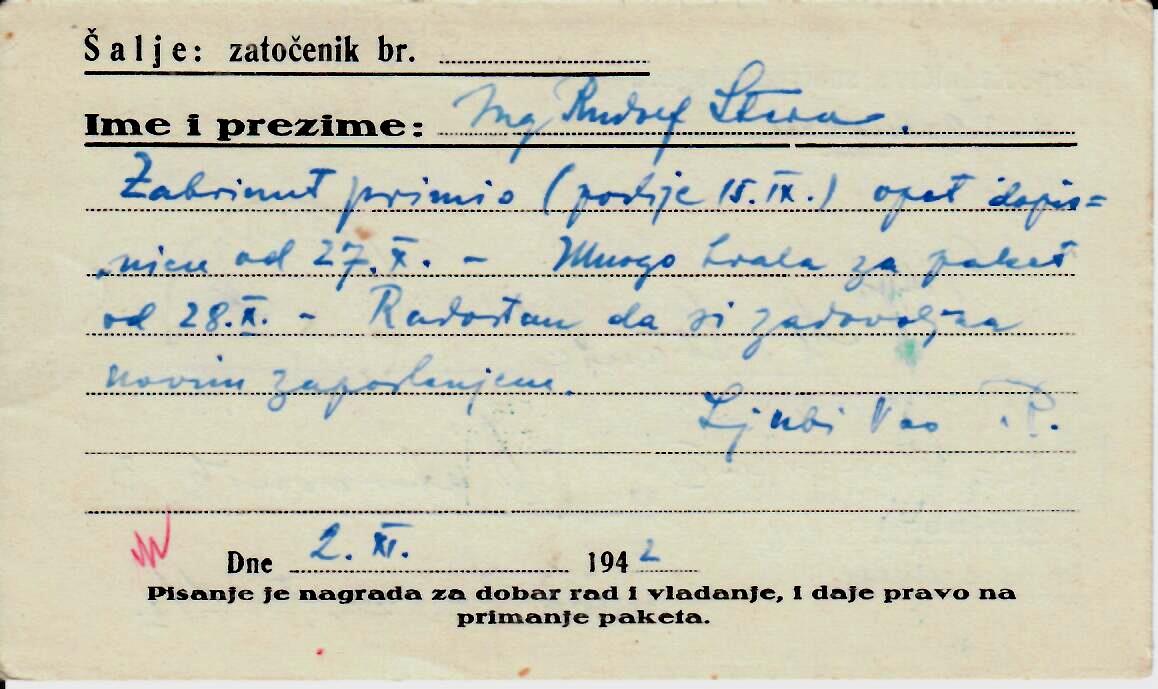 Šalje: zatočenik br.
Ime i prezime: Ing Rudolf
primio (poslije 15.IX.) opet dopis=
nicu od 27.X. - Mnogo hvala za paket
od 28.X. - Radostan da si zadovoljna
novim zaposlenjem.
Ljubi Vas R.
Dne 2. XI. 1942
Pisanje je nagrada za dobar rad i vladanje, i daje pravo na
primanje paketa.